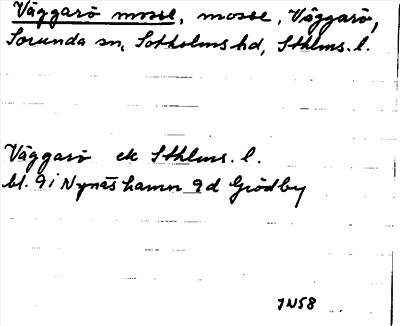 Väggarö mosse, mosse, Väggarö,
Sorunda sn, Sotholms hd, Sthlms. l.
Väggarö ek Sthlms. l.
bl. 9i Nynäshamn 9d Grödby
JN58